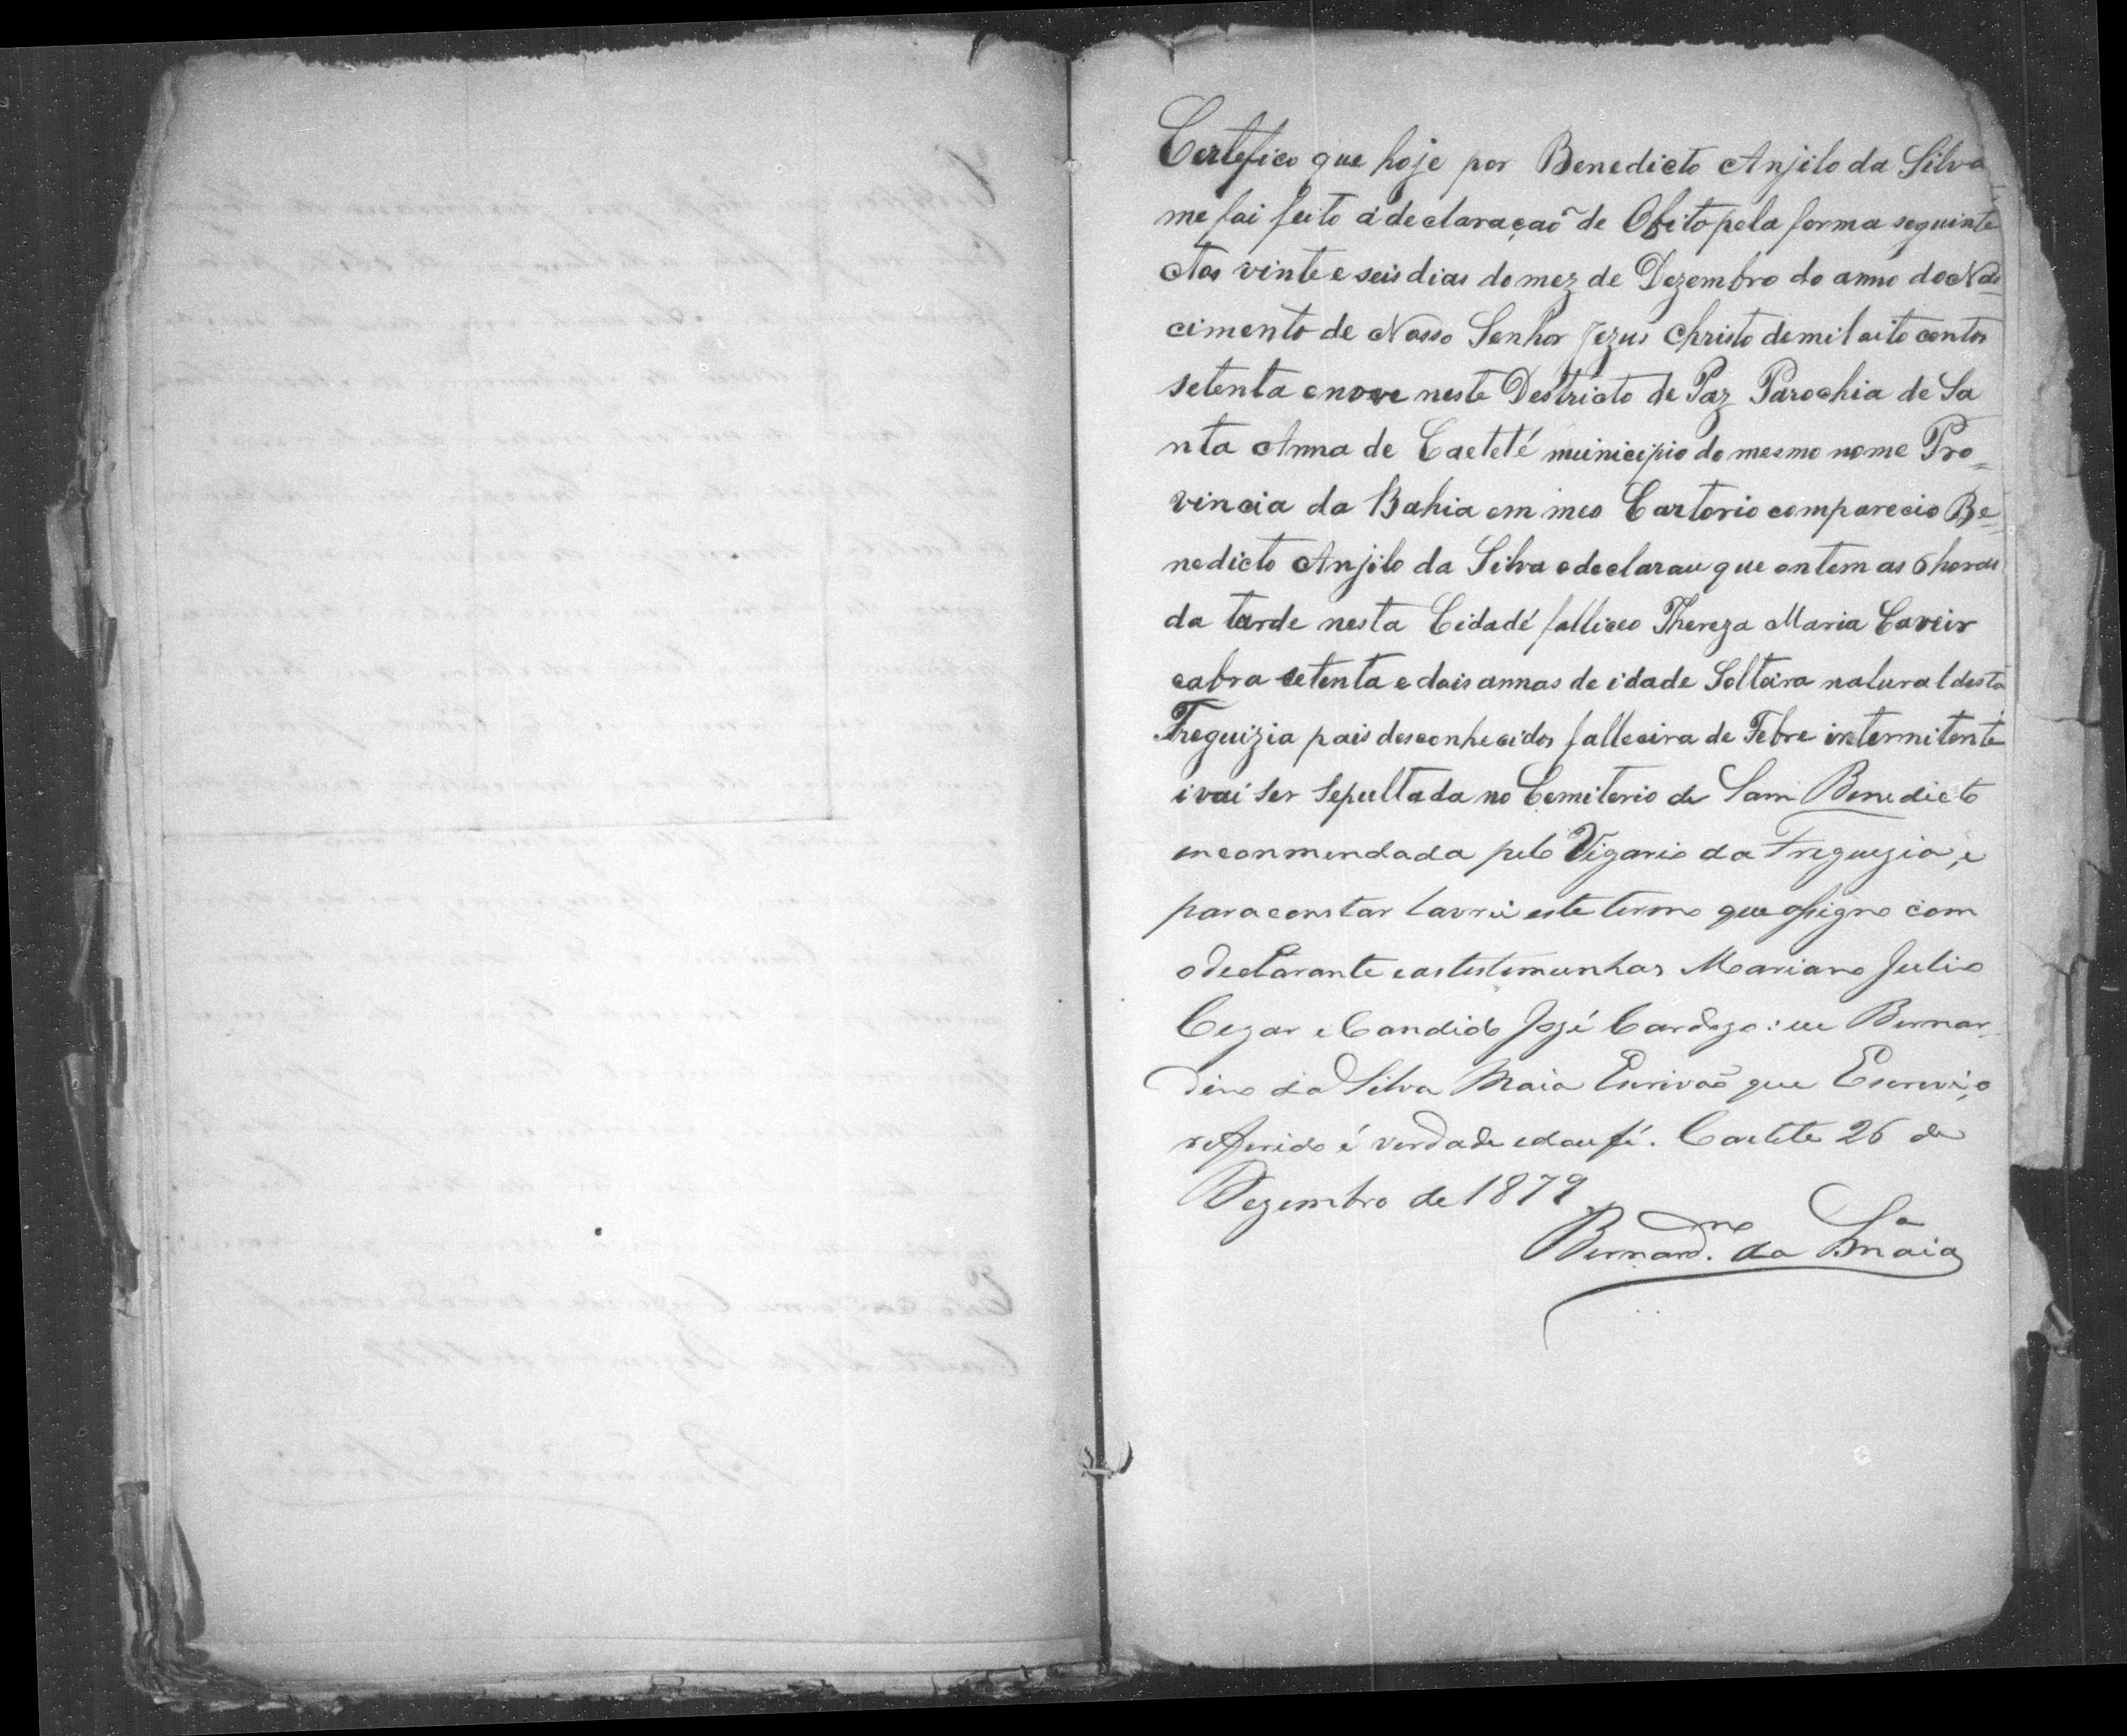 Certefico que hoje por Benedicto Anjilo da Silva
me foi feito a declaração de Obito pela forma seguinte
Aos vinte e seis dias do mez de Dezembro do anno do Nas=
cimento de Nosso Senhor Jezus Christo de mil oito centos
setenta e nove neste Destricto de Paz Parochia de Sa
nta Anna de Caeteté municipio do mesmo nome Pro=
vincia da Bahia em meo Cartorio comparecio Be=
nedicto Anjilo da Silva e declarou que ontem as 6 horas
da tarde nesta Cidade falliceo Thereza Maria
cabra setenta e dois annos de idade Solteira natural desta
Freguizia pais desconhecidos fallecira de Febre intermitente
i vai ser Sepultada no Cemiterio de Sam Benedicto
enconmendada pelo Vigario da Freguezia, e
para constar lavrei este termo que assigno com
o declarante e as testimunhas Mariano Julio
Cezar e Candido José Cardozo: eu Bernar=
dino da Silva Maia Escrivão que Escrevi, o
refferido é verdade e dou fé. Caetete 26 de
Dezembro de 1879
Bernard.no da S.a Maia